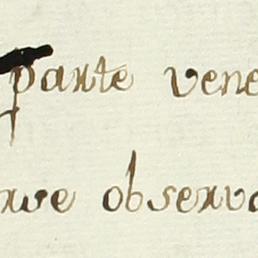 parte vene
rve observa